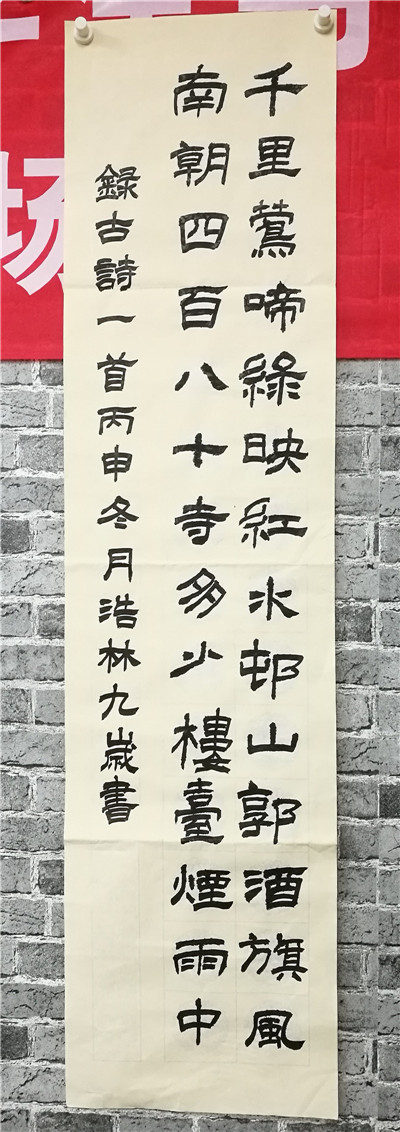 千里鶯啼綠映紅水邨山郭酒旗風
南朝四百八十寺多少樓臺煙雨中
錄古詩一首丙申冬月浩林九歲書
场